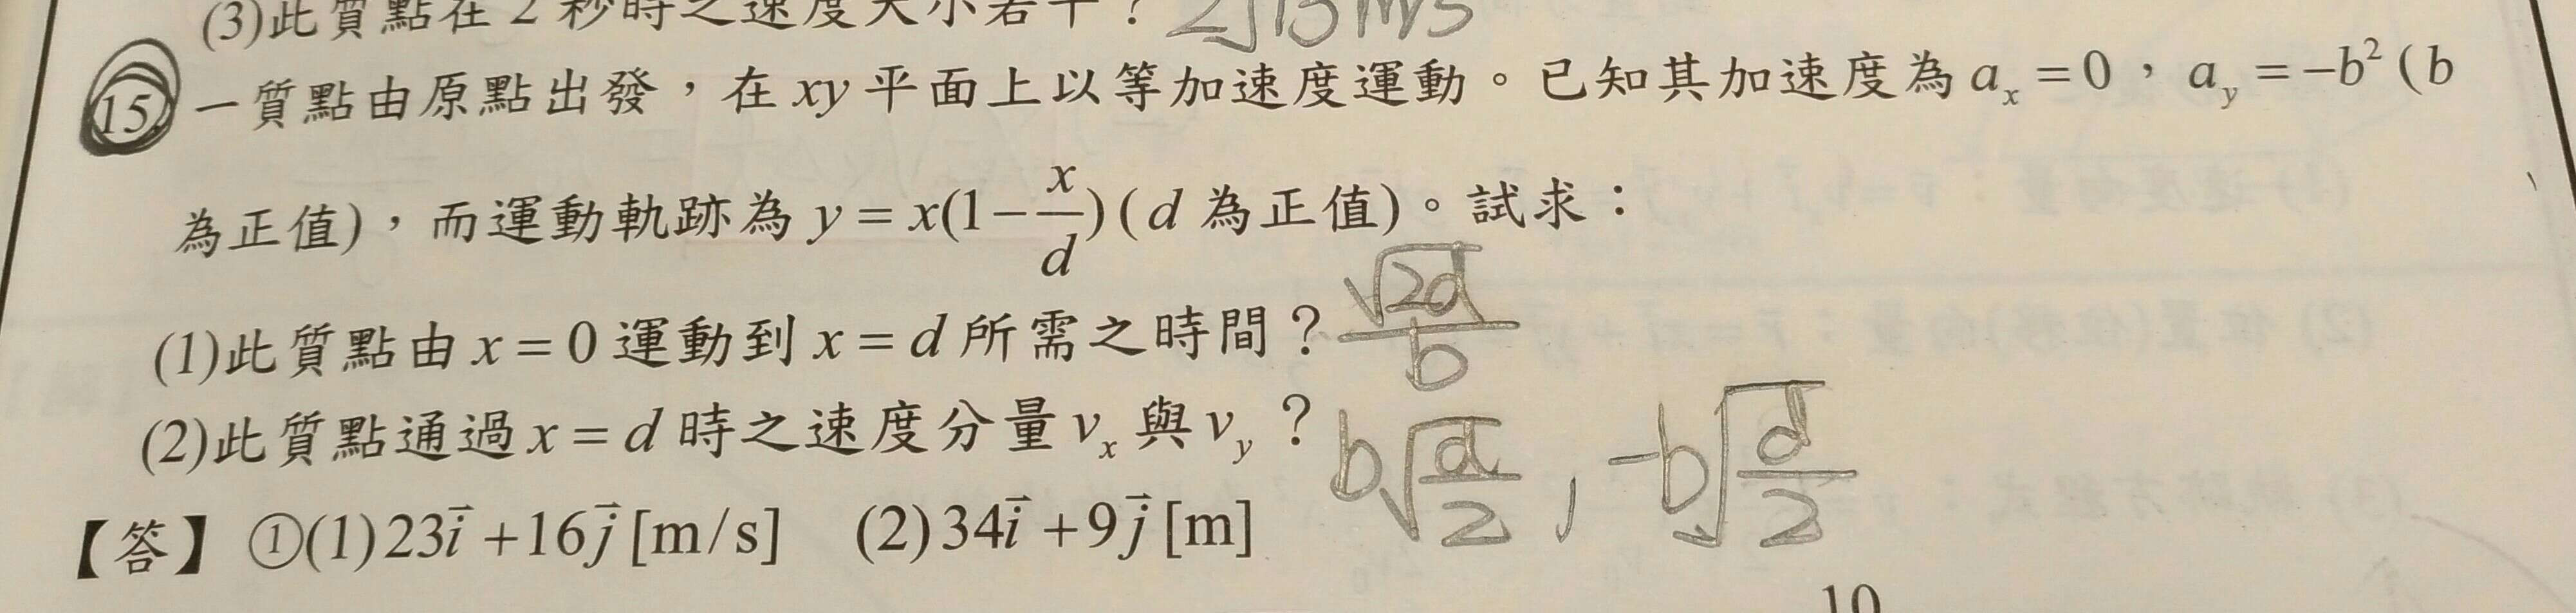 (3)此質點在 2 秒時之速度大小若干？ 2√13 m/s
15. 一質點由原點出發，在 xy 平面上以等加速度運動。已知其加速度為 aₓ = 0，a_y = −b² ( b
為正值)，而運動軌跡為 y = x(1 − x/d) ( d 為正值)。試求：
(1)此質點由 x = 0 運動到 x = d 所需之時間？ √(2d)/b
(2)此質點通過 x = d 時之速度分量 vₓ 與 v_y？ b√(d/2) , −b√(d/2)
【答】 ①(1) 23i⃗ + 16j⃗ [m/s] (2) 34i⃗ + 9j⃗ [m]
10